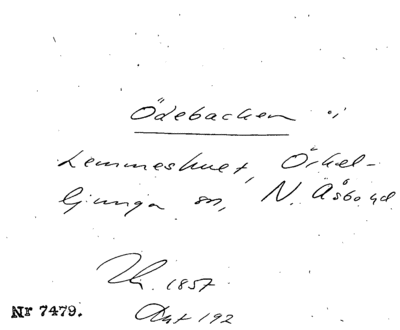 Ödebacken i
Lemmeshult, Örkel-
ljunga sn, N. Åsbo hd
1857
Nr 7479.
192